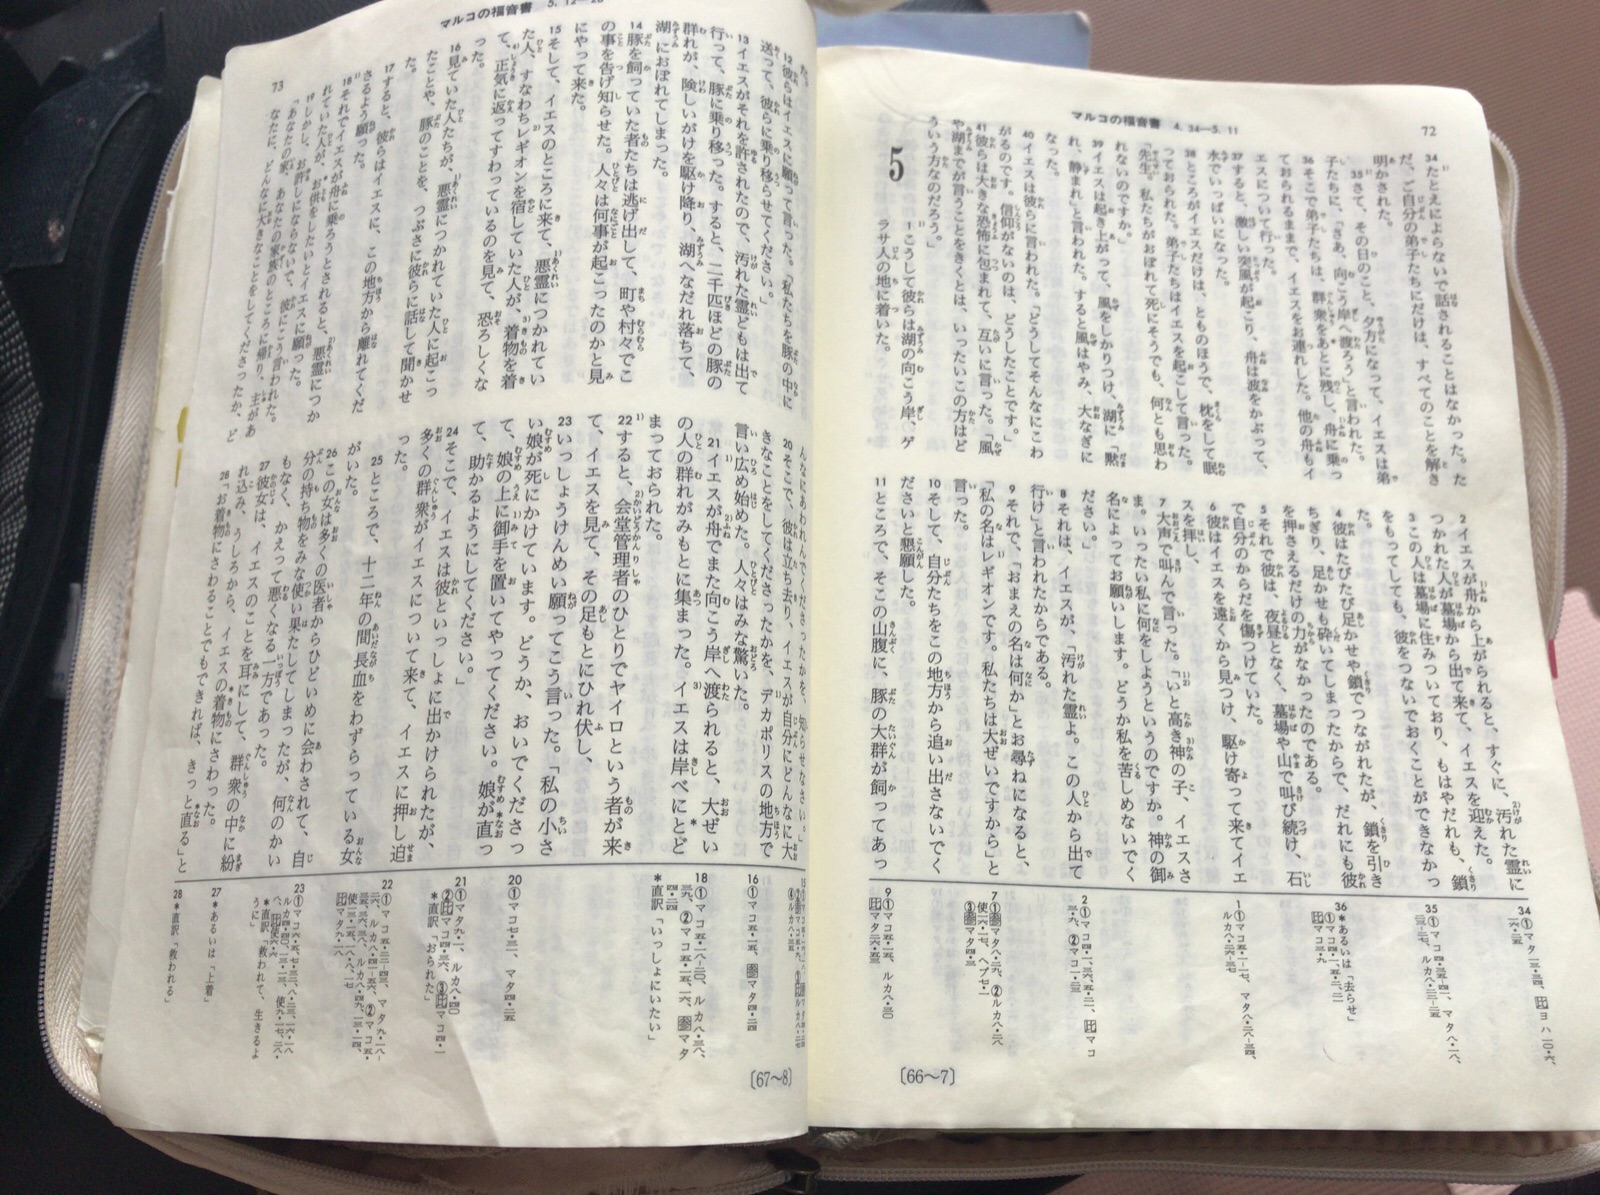 マルコの福音書 4, 34—5, 11
72
34 たとえによらないで話されることはなかった。ただ、ご自分の弟子たちにだけは、すべてのことを解き
明かされた。
35 さて、その日のこと、夕方になって、イエスは弟
子たちに、「さあ、向こう岸へ渡ろう」と言われた。
36 そこで弟子たちは、群衆をあとに残し、舟に乗っ
ておられるままで、イエスをお連れした。他の舟もイ
エスについて行った。
37 すると、激しい突風が起こり、舟は波をかぶって、
水でいっぱいになった。
38 ところがイエスだけは、とものほうで、枕をして眠
っておられた。弟子たちはイエスを起こして言った。
「先生。私たちがおぼれて死にそうでも、何とも思わ
れないのですか。」
39 イエスは起き上がって、風をしかりつけ、湖に「黙
れ、静まれ」と言われた。すると風はやみ、大なぎに
なった。
40 イエスは彼らに言われた。「どうしてそんなにこわ
がるのです。信仰がないのは、どうしたことです。」
41 彼らは大きな恐怖に包まれて、互いに言った。「風
や湖までが言うことをきくとは、いったいこの方はど
ういう方なのだろう。」
5
1 こうして彼らは湖の向こう岸、ゲ
ラサ人の地に着いた。
2 イエスが舟から上がられると、すぐに、汚れた霊に
つかれた人が墓場から出て来て、イエスを迎えた。
3 この人は墓場に住みついており、もはやだれも、鎖
をもってしても、彼をつないでおくことができなかっ
た。
4 彼はたびたび足かせや鎖でつながれたが、鎖を引き
ちぎり、足かせも砕いてしまったからで、だれにも彼
を押さえるだけの力がなかったのである。
5 それで彼は、夜昼となく、墓場や山で叫び続け、石
で自分のからだを傷つけていた。
6 彼はイエスを遠くから見つけ、駆け寄って来てイエ
スを拝し、
7 大声で叫んで言った。「いと高き神の子、イエスさ
ま。いったい私に何をしようというのですか。神の御
名によってお願いします。どうか私を苦しめないでく
ださい。」
8 それは、イエスが、「汚れた霊よ。この人から出て
行け」と言われたからである。
9 それで、「おまえの名は何か」とお尋ねになると、
「私の名はレギオンです。私たちは大ぜいですから」と
言った。
10 そして、自分たちをこの地方から追い出さないでく
ださいと懇願した。
11 ところで、そこの山腹に、豚の大群が飼ってあっ
36 *あるいは「去らせ」
[66~7]
マルコの福音書 5, 12—28
73
た。
12 彼らはイエスに願って言った。「私たちを豚の中に
送って、彼らに乗り移らせてください。」
13 イエスがそれを許されたので、汚れた霊どもは出て
行って、豚に乗り移った。すると、二千匹ほどの豚の
群れが、険しいがけを駆け降り、湖へなだれ落ちて、
湖におぼれてしまった。
14 豚を飼っていた者たちは逃げ出して、町や村々でこ
の事を告げ知らせた。人々は何事が起こったのかと見
にやって来た。
15 そして、イエスのところに来て、悪霊につかれてい
た人、すなわちレギオンを宿していた人が、着物を着
て、正気に返ってすわっているのを見て、恐ろしくな
った。
16 見ていた人たちが、悪霊につかれていた人に起こっ
たことや、豚のことを、つぶさに彼らに話して聞かせ
た。
17 すると、彼らはイエスに、この地方から離れてくだ
さるよう願った。
18 それでイエスが舟に乗ろうとされると、悪霊につか
れていた人が、お供をしたいとイエスに願った。
19 しかし、お許しにならないで、彼にこう言われた。
「あなたの家、あなたの家族のところに帰り、主があ
なたに、どんなに大きなことをしてくださったか、ど
んなにあわれんでくださったかを、知らせなさい。」
20 そこで、彼は立ち去り、イエスが自分にどんなに大
きなことをしてくださったかを、デカポリスの地方で
言い広め始めた。人々はみな驚いた。
21 イエスが舟でまた向こう岸へ渡られると、大ぜい
の人の群れがみもとに集まった。イエスは岸べにとど
まっておられた。
22 すると、会堂管理者のひとりでヤイロという者が来
て、イエスを見て、その足もとにひれ伏し、
23 いっしょうけんめい願ってこう言った。「私の小さ
い娘が死にかけています。どうか、おいでくださっ
て、娘の上に御手を置いてやってください。娘が直っ
て、助かるようにしてください。」
24 そこで、イエスは彼といっしょに出かけられたが、
多くの群衆がイエスについて来て、イエスに押し迫
った。
25 ところで、十二年の間長血をわずらっている女
がいた。
26 この女は多くの医者からひどいめに会わされて、自
分の持ち物をみな使い果たしてしまったが、何のかい
もなく、かえって悪くなる一方であった。
27 彼女は、イエスのことを耳にして、群衆の中に紛
れ込み、うしろから、イエスの着物にさわった。
28 「お着物にさわることでもできれば、きっと直る」と
*直訳「いっしょにいたい」
*直訳「おられた」
*直訳「救われて、生きるよ
うに」
27 *あるいは「上着」
28 *直訳「救われる」
[67~8]